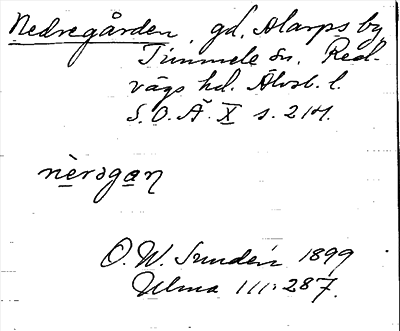 Nedregården, gd, Alarps by
Timmele sn. Red-
vägs hd. Älvsb. l.
S.O.Ä. X s. 214.
nèrəgan
O. W. Sundén 1899
Ulma 111:287.